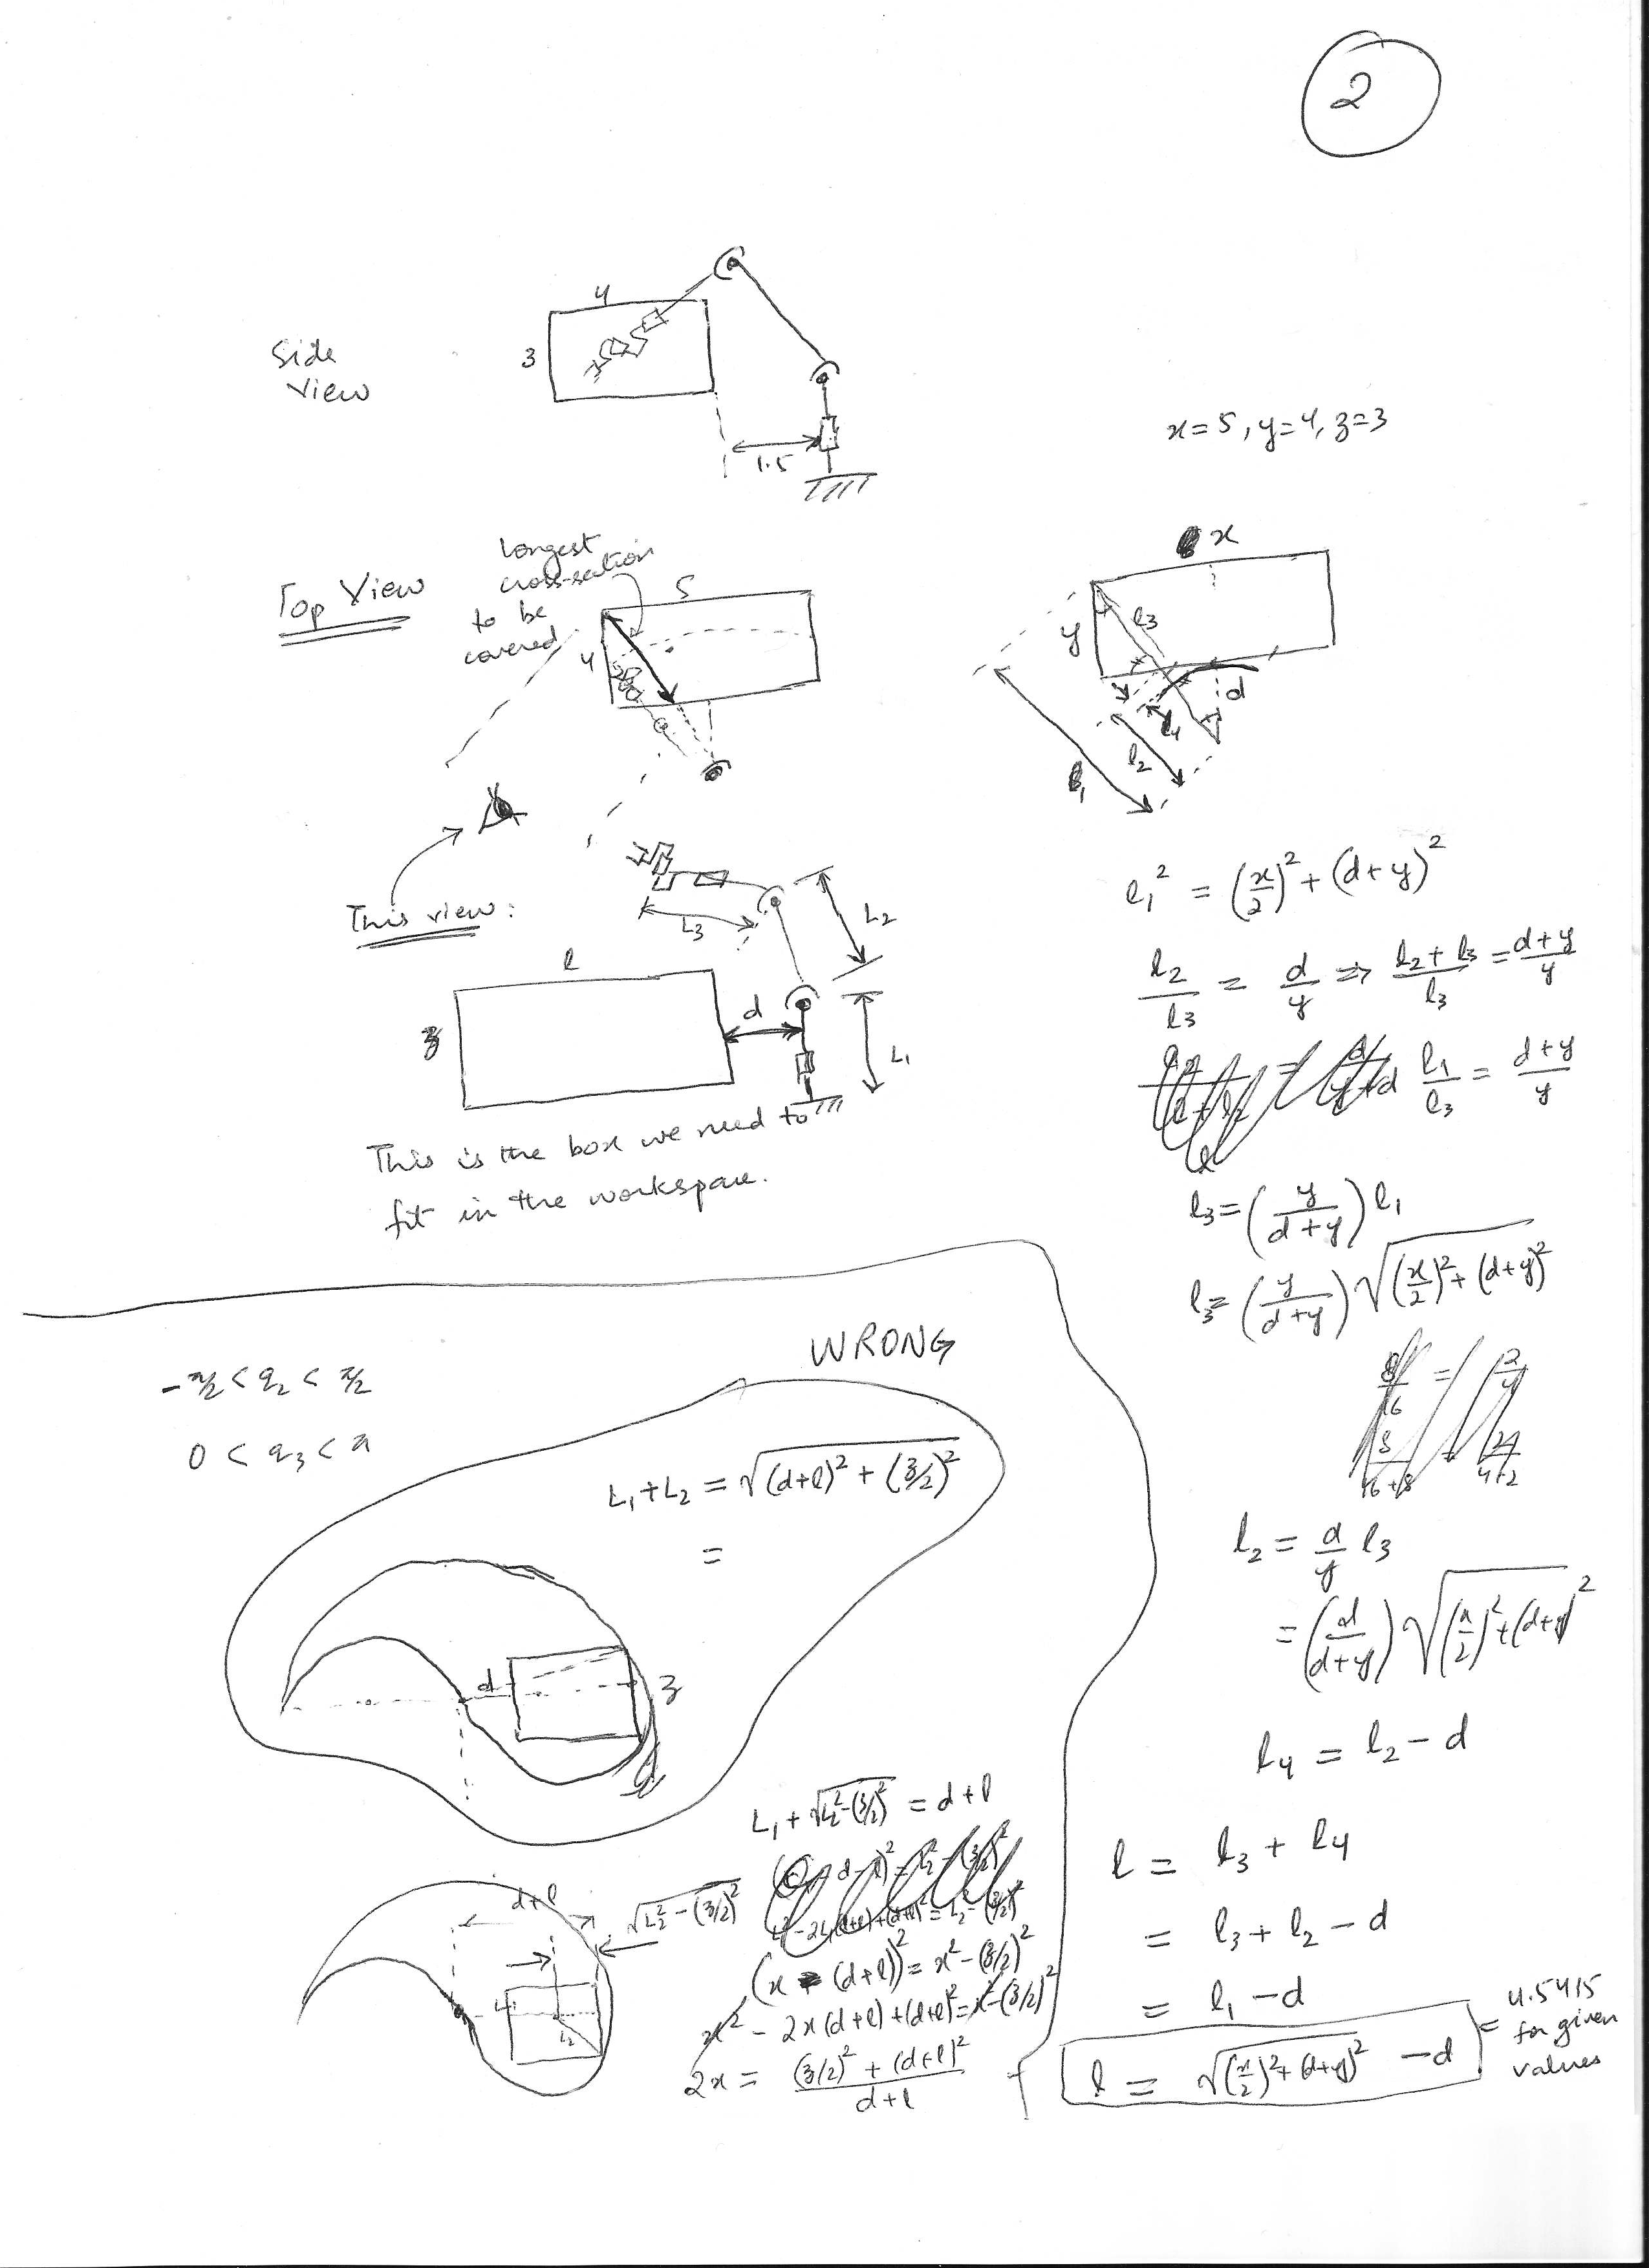 2
Side
View
4
3
1.5
x=5, y=4, z=3
Top View
Longest
cross-section
to be
covered
5
4
x
y
l3
d
l4
l2
l1
This view:
L3
L2
l
z
d
L1
This is the box we need to
fit in the workspace.
l1² = (x/2)² + (d+y)²
l2/l3 = d/y ⇒ (l2+l3)/l3 = (d+y)/y
l1/l3 = (d+y)/y
l3 = (y/(d+y)) l1
l3 = (y/(d+y)) √((x/2)² + (d+y)²)
l2 = d/y l3
= (d/(d+y)) √((x/2)² + (d+y)²
l4 = l2 - d
l = l3 + l4
= l3 + l2 - d
= l1 - d
l = √((x/2)² + (d+y)²) - d = 4.5415
for given
values
WRONG
-π/2 < q2 < π/2
0 < q3 < π
L1 + L2 = √((d+l)² + (z/2)²)
=
d
z
L1 + √(L2² - (z/2)²) = d+l
d+l
√(L2² - (z/2)²)
L2
(x - (d+l))² = x² - (z/2)²
x² - 2x(d+l) + (d+l)² = x² - (z/2)²
2x = ((z/2)² + (d+l)²)/(d+l)